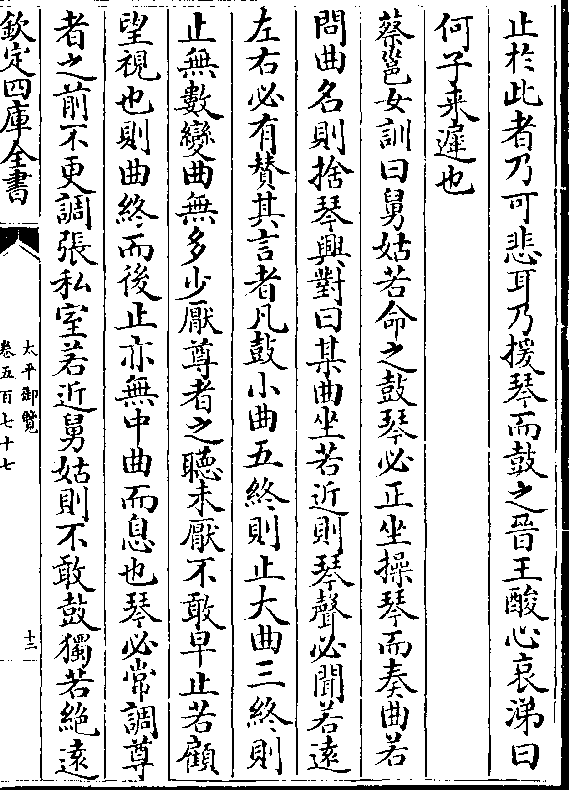 止於此者乃可悲耳乃援琴而鼓之晉王酸心哀涕曰
何子来遲也
蔡邕女訓曰舅姑若命之鼓琴必正坐操琴而奏曲若
問曲名則捨琴興對曰某曲坐若近則琴聲必聞若遠
左右必有贊其言者凡鼓小曲五終則止大曲三終則
止無數變曲無多少厭尊者之聽未厭不敢早止若顧
望視也則曲終而後止亦無中曲而息也琴必常調尊
者之前不更調張私室若近舅姑則不敢鼓獨若絶遠
欽定四庫全書
太平御覽
卷五百七十七
十三